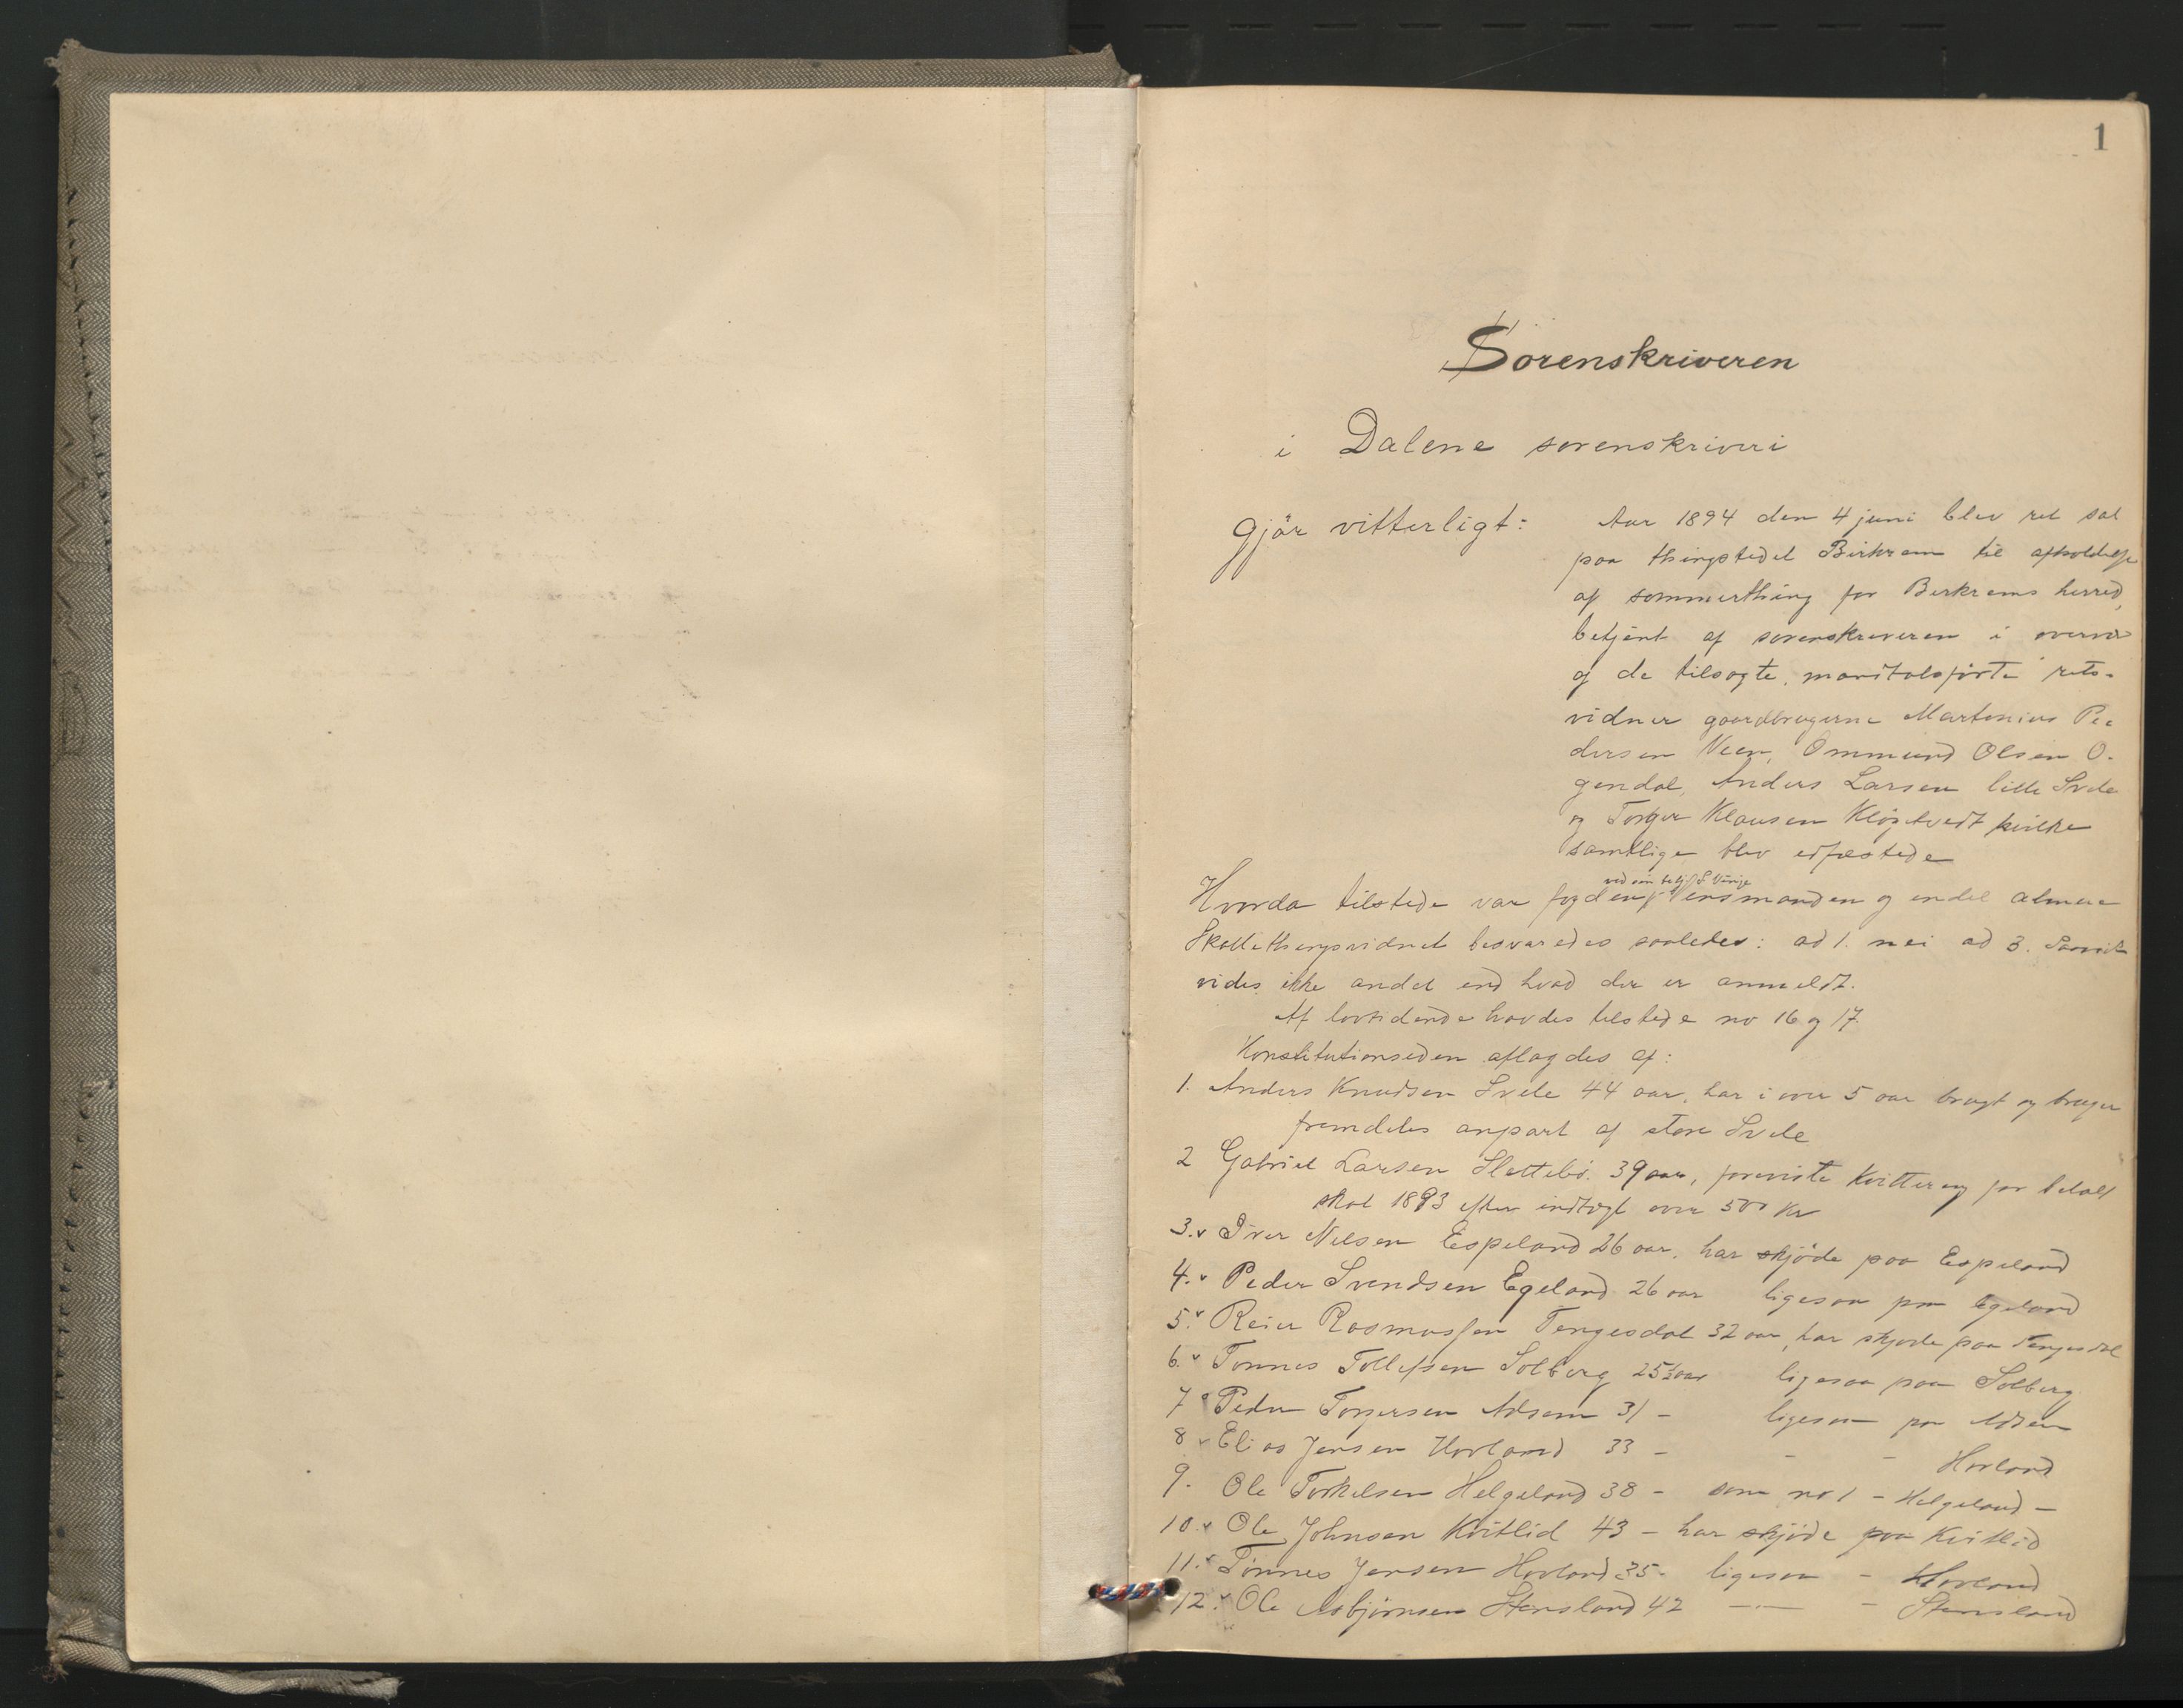 1
Sorenskriveren
i Dalene sorenskriveri
gjör vitterligt:
Aar 1894 den 4 juni blev ret sat
paa thingstedet Birkrem til afholdelse
af sommerthing for Berkrems herred,
betjent af sorenskriveren i overvær
af de tilsagte, mandtalsførte rets-
vidner gaardbrugerne Martenius Pe
dersen Veen, Ommund Olsen O-
gendal, Anders Larsen lille Svele
og Torger Klausen Kløgetvedt hvilke
samtlige blev edfæstede
ved sin betj
Hvorda tilstede var fogden lensmanden og endel almue
Skattethingsvidnet besvaredes saaledes: ad 1. nei ad 3. Saavidt
vides ikke andet end hvad der er anmeldt.
Af lovtidende havdes tilstede no 16 og 17.
Konstitutionseden aflagdes af:
1. Anders Knudsen Svele 44 aar, har i over 5 aar brugt og bruger
fremdeles anpart af store Svele
2 Gabriel Larsen Slettebö. 39 aar, foreviste kvittering for betalt
skat 1893 efter indtægt over 500 Kr
3. v Iver Nilsen Espeland 26 aar. har skjöde paa Espeland
4. v Peder Svendsen Egeland 26 aar ligesaa paa Egeland
5. v Reier Rasmussen Tengesdal 32 aar, har skjøde paa Tengesdal
6. v Tønnes Tollefsen Solberg 25½ aar ligesaa paa Solberg
7 v Peder Torgersen Adsem 31 - ligesaa paa Adsem
8 v Elias Jensen Hovland 33 - - - Hovland
9. Ole Torkelsen Helgeland 38 - som no 1 - Helgeland -
10. v Ole Johnsen Kvitlid 43 - har skjöde paa Kvitlid
11. v Tønnes Jensen Hovland 35 - ligesaa - Hovland
12. v Ole Asbjørnsen Stensland 42 - - - Stensland